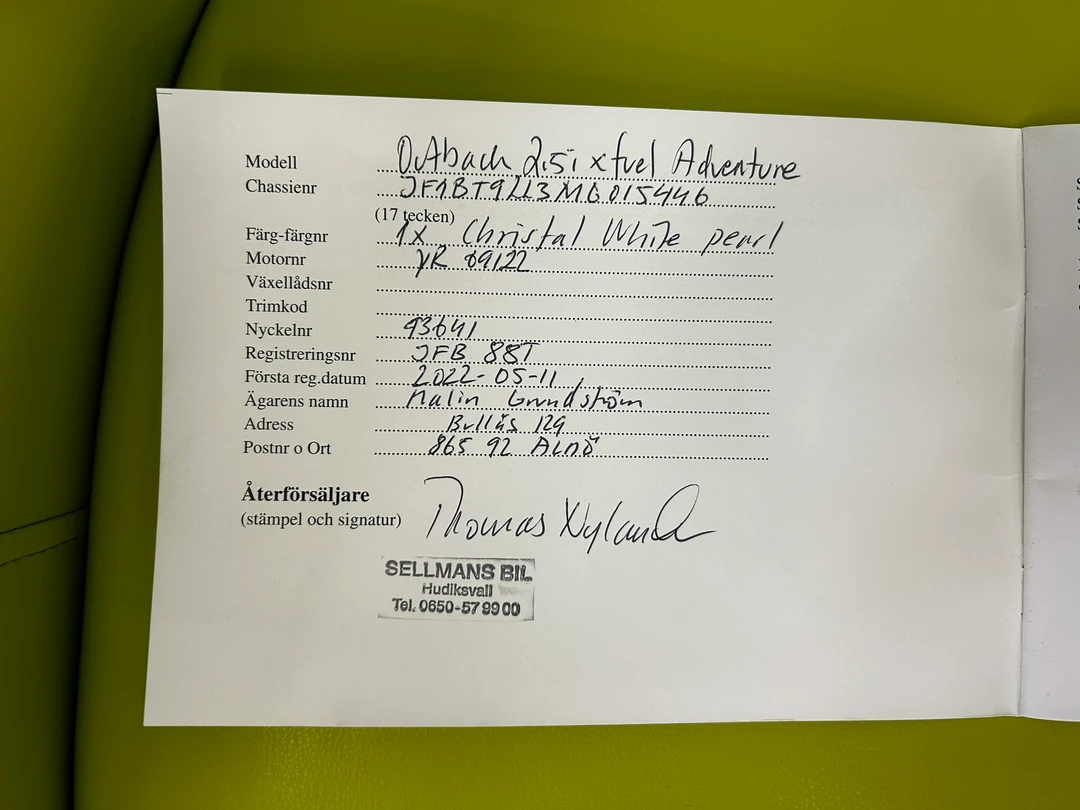 Modell Outbach 2,5i xfuel Adventure
Chassienr JF1BT9LL3MG015446
(17 tecken)
Färg-färgnr 1x Christal White pearl
Motornr YR 09122
Växellådsnr
Trimkod
Nyckelnr 93641
Registreringsnr JFB 88T
Första reg.datum 2022-05-11
Ägarens namn Malin Grundström
Adress Bullås 129
Postnr o Ort 865 92 ALNÖ
Återförsäljare
(stämpel och signatur) Thomas Nyland
SELLMANS BIL
Hudiksvall
Tel. 0650-57 99 00